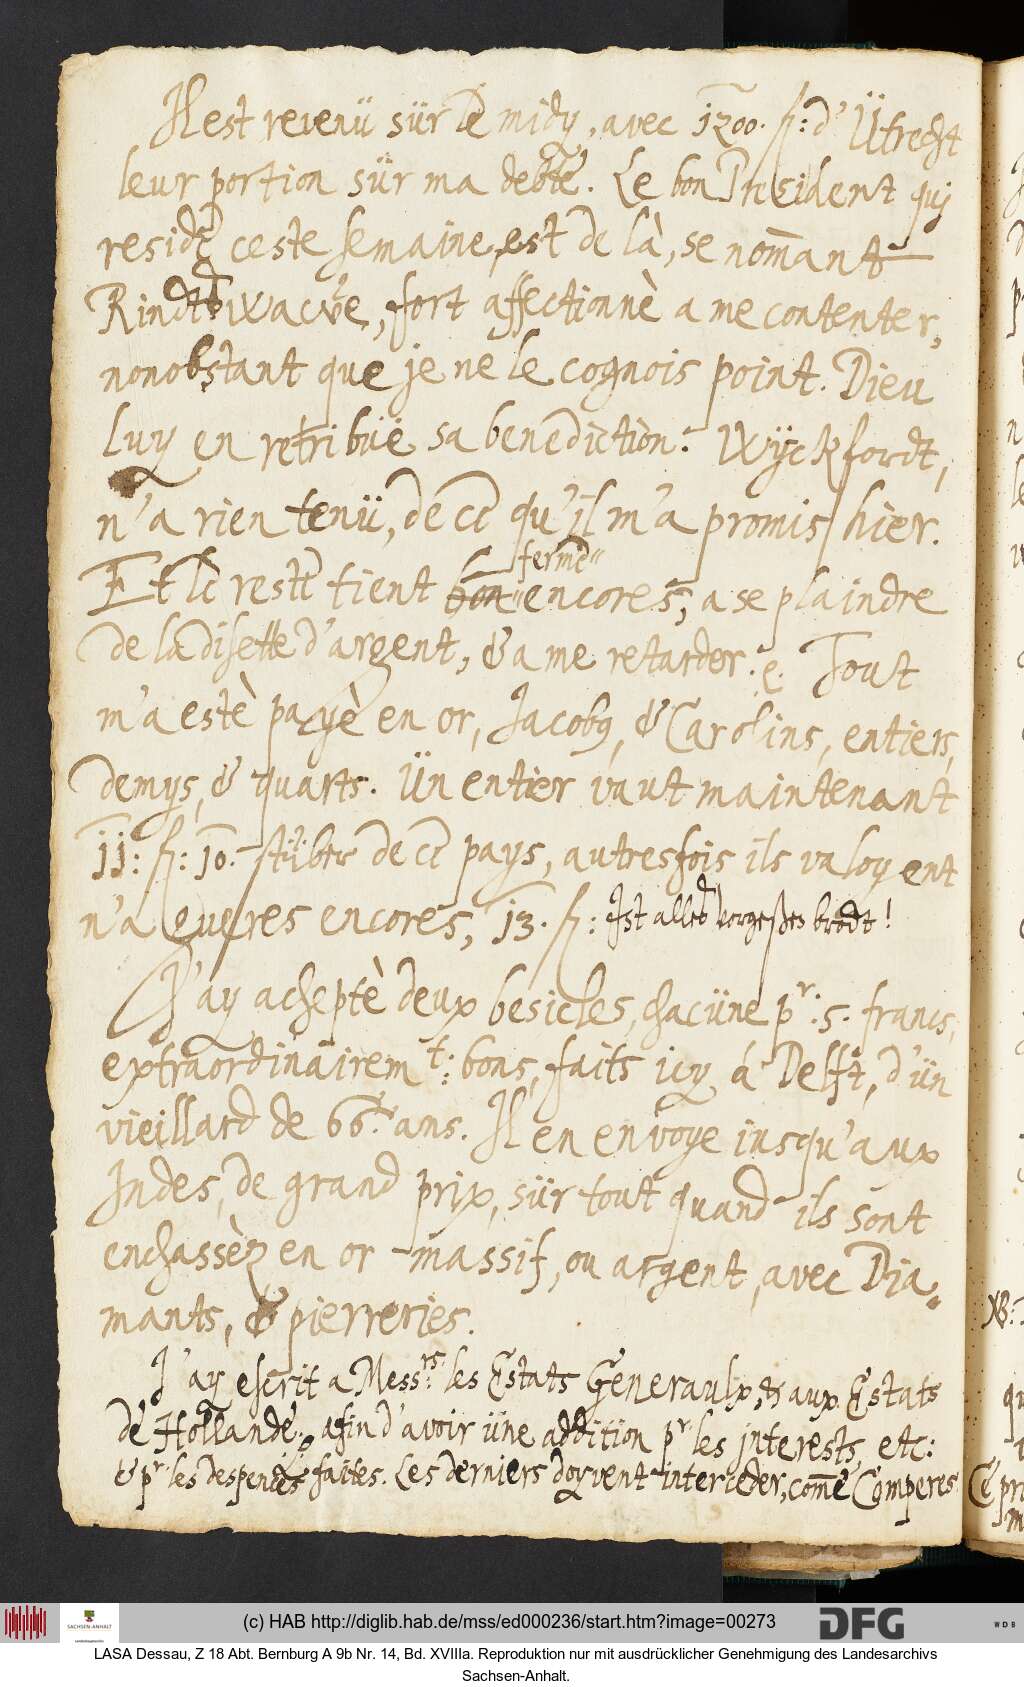 Il est revenü sür le midy, avec 1200. fl: d'Ütrecht
leur portion sür ma debte. Le bon President quj
reside ceste semaine, est de là, se nom̄ant
fort affectionnè a me contenter,
nonobstant que je ne le cognois point. Dieu
luy en retribüe sa benediction. Wÿckfordt,
n'a rien tenü, de ce qu'jl m'a promis hier.
ferme
Et le reste tient bon encores, a se plaindre
de la disette d'argent, & a me retarder. e. Tout
m'a estè payè en or, Jacobq, & Carolins, entiers,
demys, & quarts. Ün entier vaut maintenant
11: fl: 10. stüber de ce pays, autresfois ils valoyent
n'a gueres encores, 13. fl: Ist alles vorgeßen brodt!
J'ay acheptè deux besicles, chacüne pr: 5. francs,
extraordinairemt: bons, faits icy á Delft, d'ün
vieillard de 66. ans. Il en envoye iusqu'aux
Indes, de grand prix, sür tout quand ils sont
enchassèz en or massif, ou argent, avec Dia-
mants, & pierreries.
J'ay escrit a Messrs: les Estats Generaulx, & aux Estats
de Hollande, afin d'avoir üne addition pr les jnterests, etc:
& pr les despences faites. Les derniers doyvent interceder, com̄e Comperes.
(c) HAB http://diglib.hab.de/mss/ed000236/start.htm?image=00273
SACHSEN-ANHALT
DFG
WDB
LASA Dessau, Z 18 Abt. Bernburg A 9b Nr. 14, Bd. XVIIIa. Reproduktion nur mit ausdrücklicher Genehmigung des Landesarchivs
Sachsen-Anhalt.